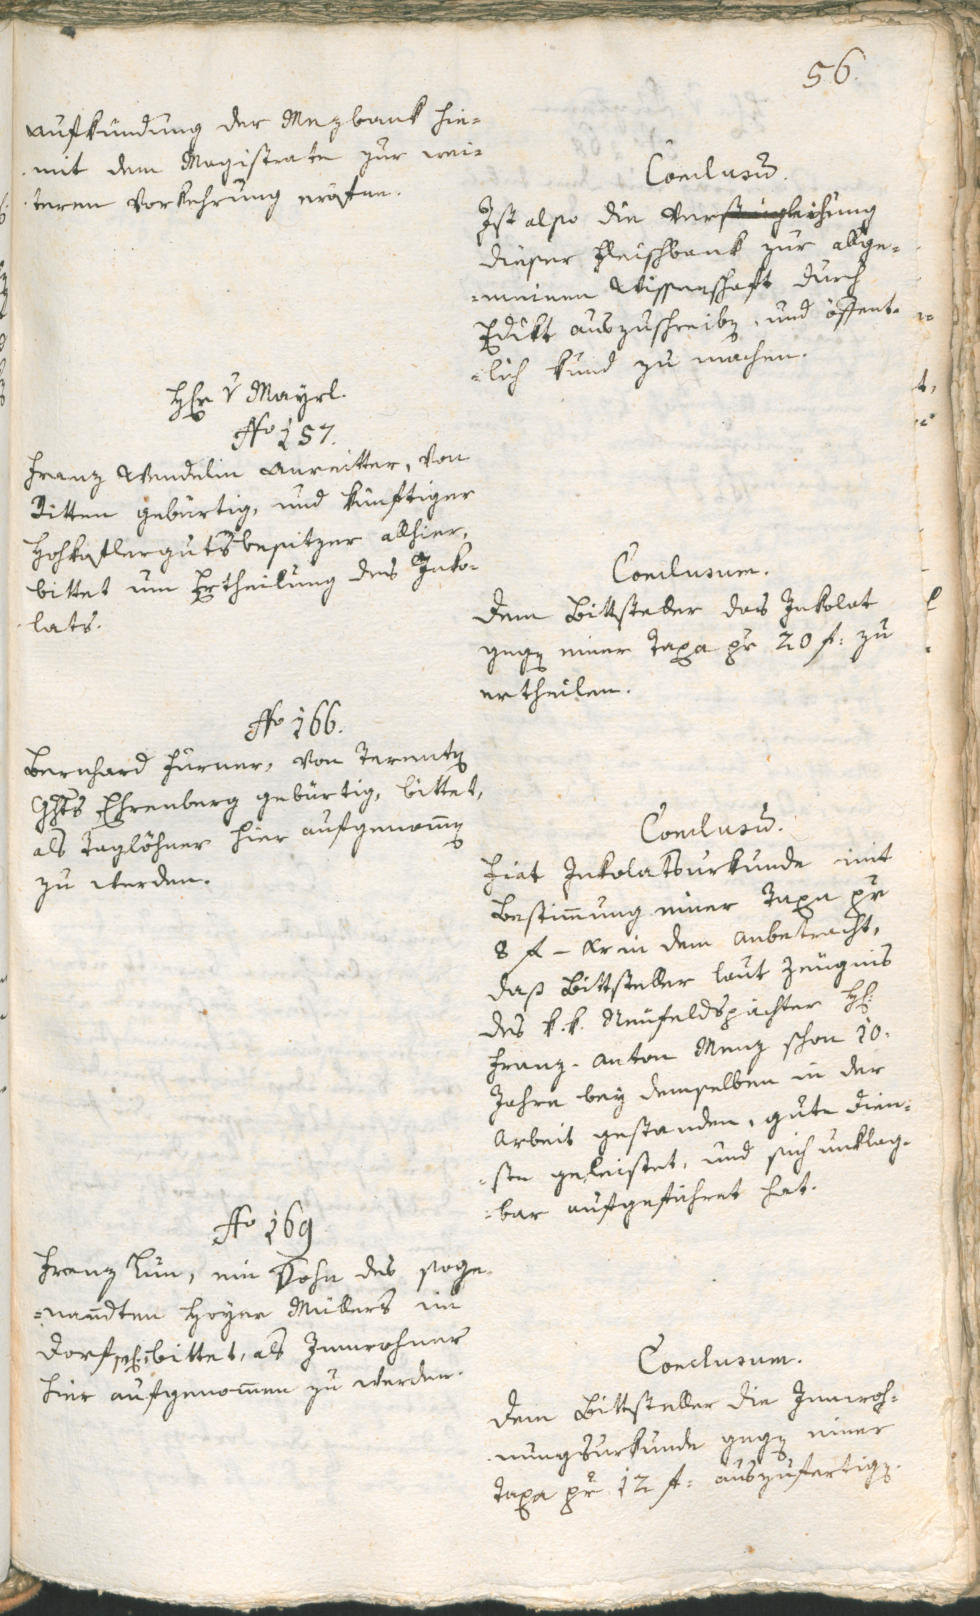 56.
Aufkündung der Mezbank hie=
mit dem Magistrate zur wei=
teren Vorkehrung eröfne.
Conclusũ.
Ist also die Versteigleihung
dieser Fleischbank zur allge=
=meinen Wissenschaft durch
Edikt auszuschreibẽ, und öffent=
=lich kund zu machen.
Hr v Mayrl.
No 157.
Franz Wendelin Anreitter, von
Ritten gebürtig, und künftiger
Hohkoflerguts besitzer allhier,
bittet um Ertheilung des Inko=
lats.
Conclusum.
Dem Bittsteller das Inkolat
gegẽ einer Taxa pr 20 f: zu
ertheilen.
No 166.
Bernhard Hurner, von Terentẽ
Ghts Ehrenberg gebürtig, bittet,
als Taglöhner hier aufgenom̄ẽ
zu werden.
Conclusũ.
Fiat Inkolatsurkunde mit
Bestim̄ung einer Taxa pr
8 f – kr in dem Anbetracht,
daß Bittsteller laut Zeugnis
des k. k. Neufeldspächter H:
Franz Anton Menz schon 10.
Jahre bey demselben in der
Arbeit gestanden, gute Dien=
=ste geleistet, und sich unklag=
=bar aufgeführet hat.
No 169
Franz Lun, ein Sohn des soge=
=nan̄dten Hoyer Müllers im
Dorf, bittet, als Innwohner
hier aufgenom̄en zu werden.
Conclusum.
Dem Bittsteller die Innwoh=
nungsurkunde gegẽ einer
Taxa pr 12 f: auszufertigẽ.